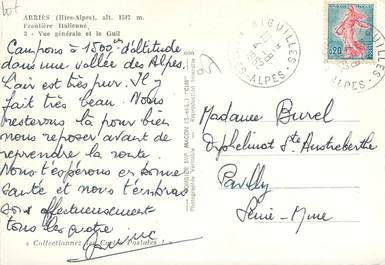 ABRIES (Htes-Alpes), alt. 1547 m.
Frontière Italienne
3 - Vue générale et le Guil
Campons à 1800m d'altitude
dans une vallée des Alpes.
L'air est très pur. Il y
fait très beau. Nous
resterons là pour bien
nous reposer avant de
reprendre la route.
Nous t'espérons en bonne
santé et nous t'embras
sons affectueusement
tous les quatre
« Collectionnez les Cartes Postales ! »
MACON (S.-&-L.) "CIM"
Photographie Véritable
Reproduction interdite
AIGUILLES
Htes-ALPES
0,20
Madame Burel
Orphelinat Ste Austreberthe
Pavilly
Seine-Mme